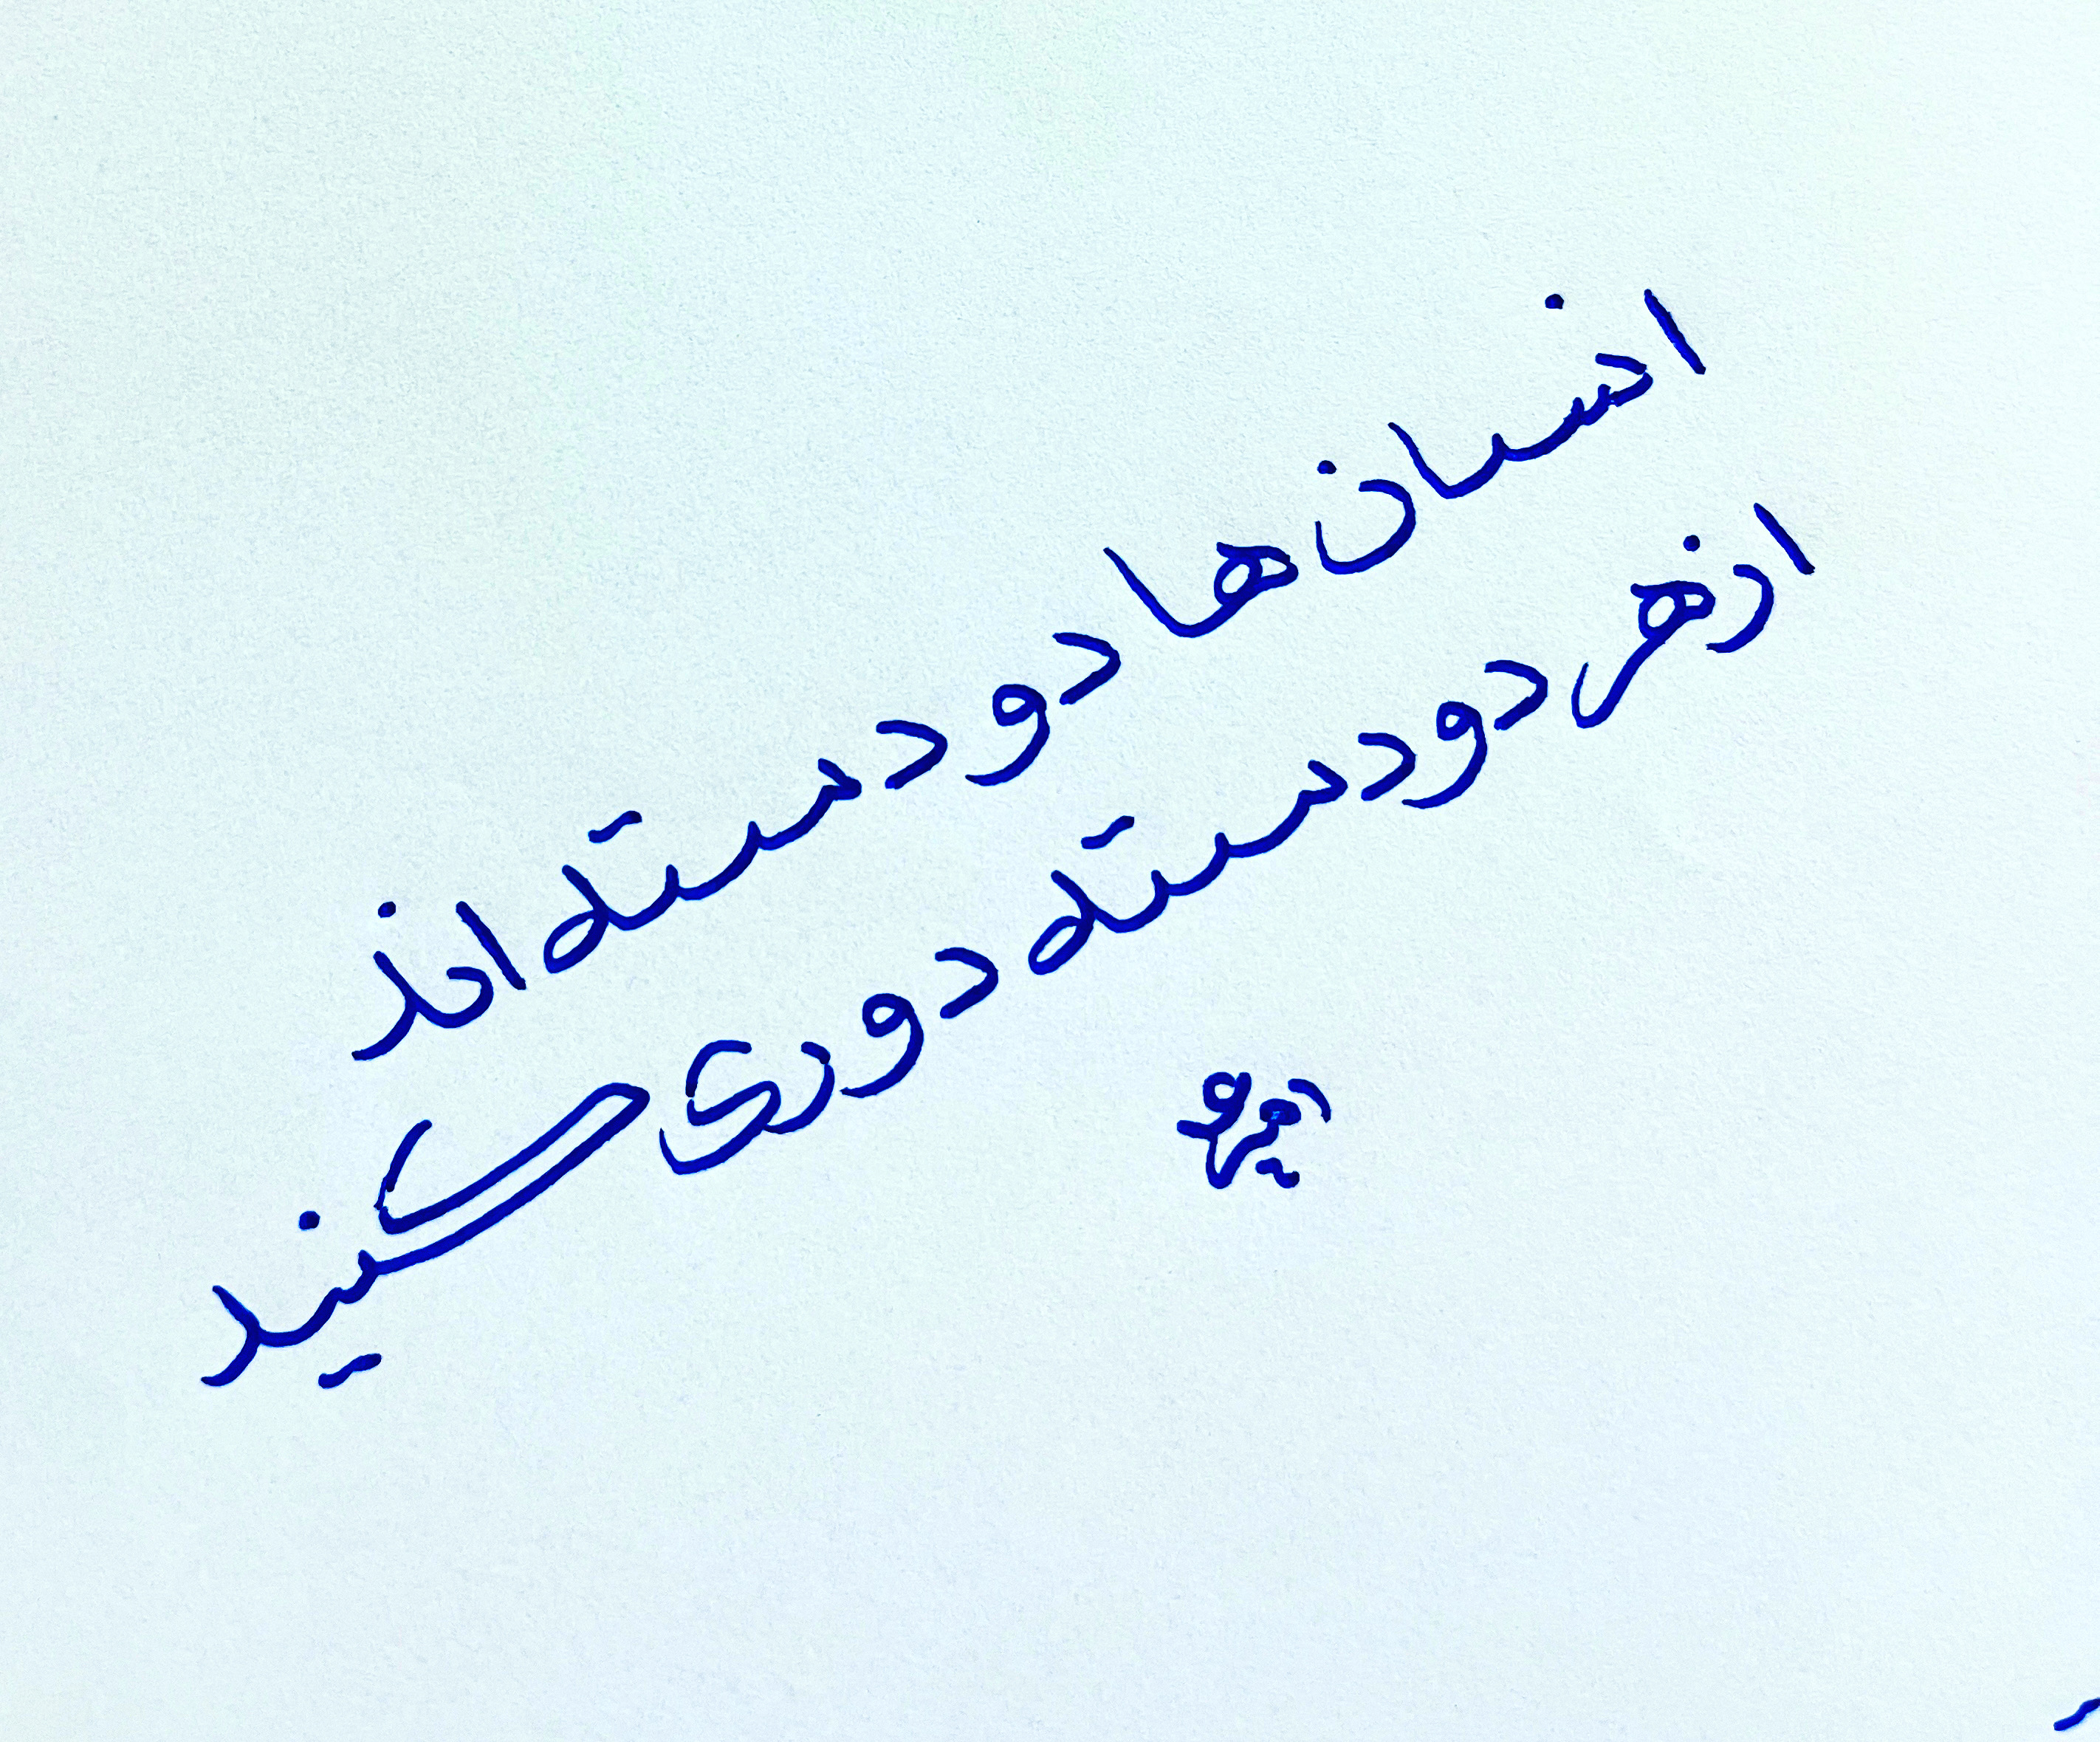 انسان‌ها دو دسته اند
از هر دو دسته دوری کنید